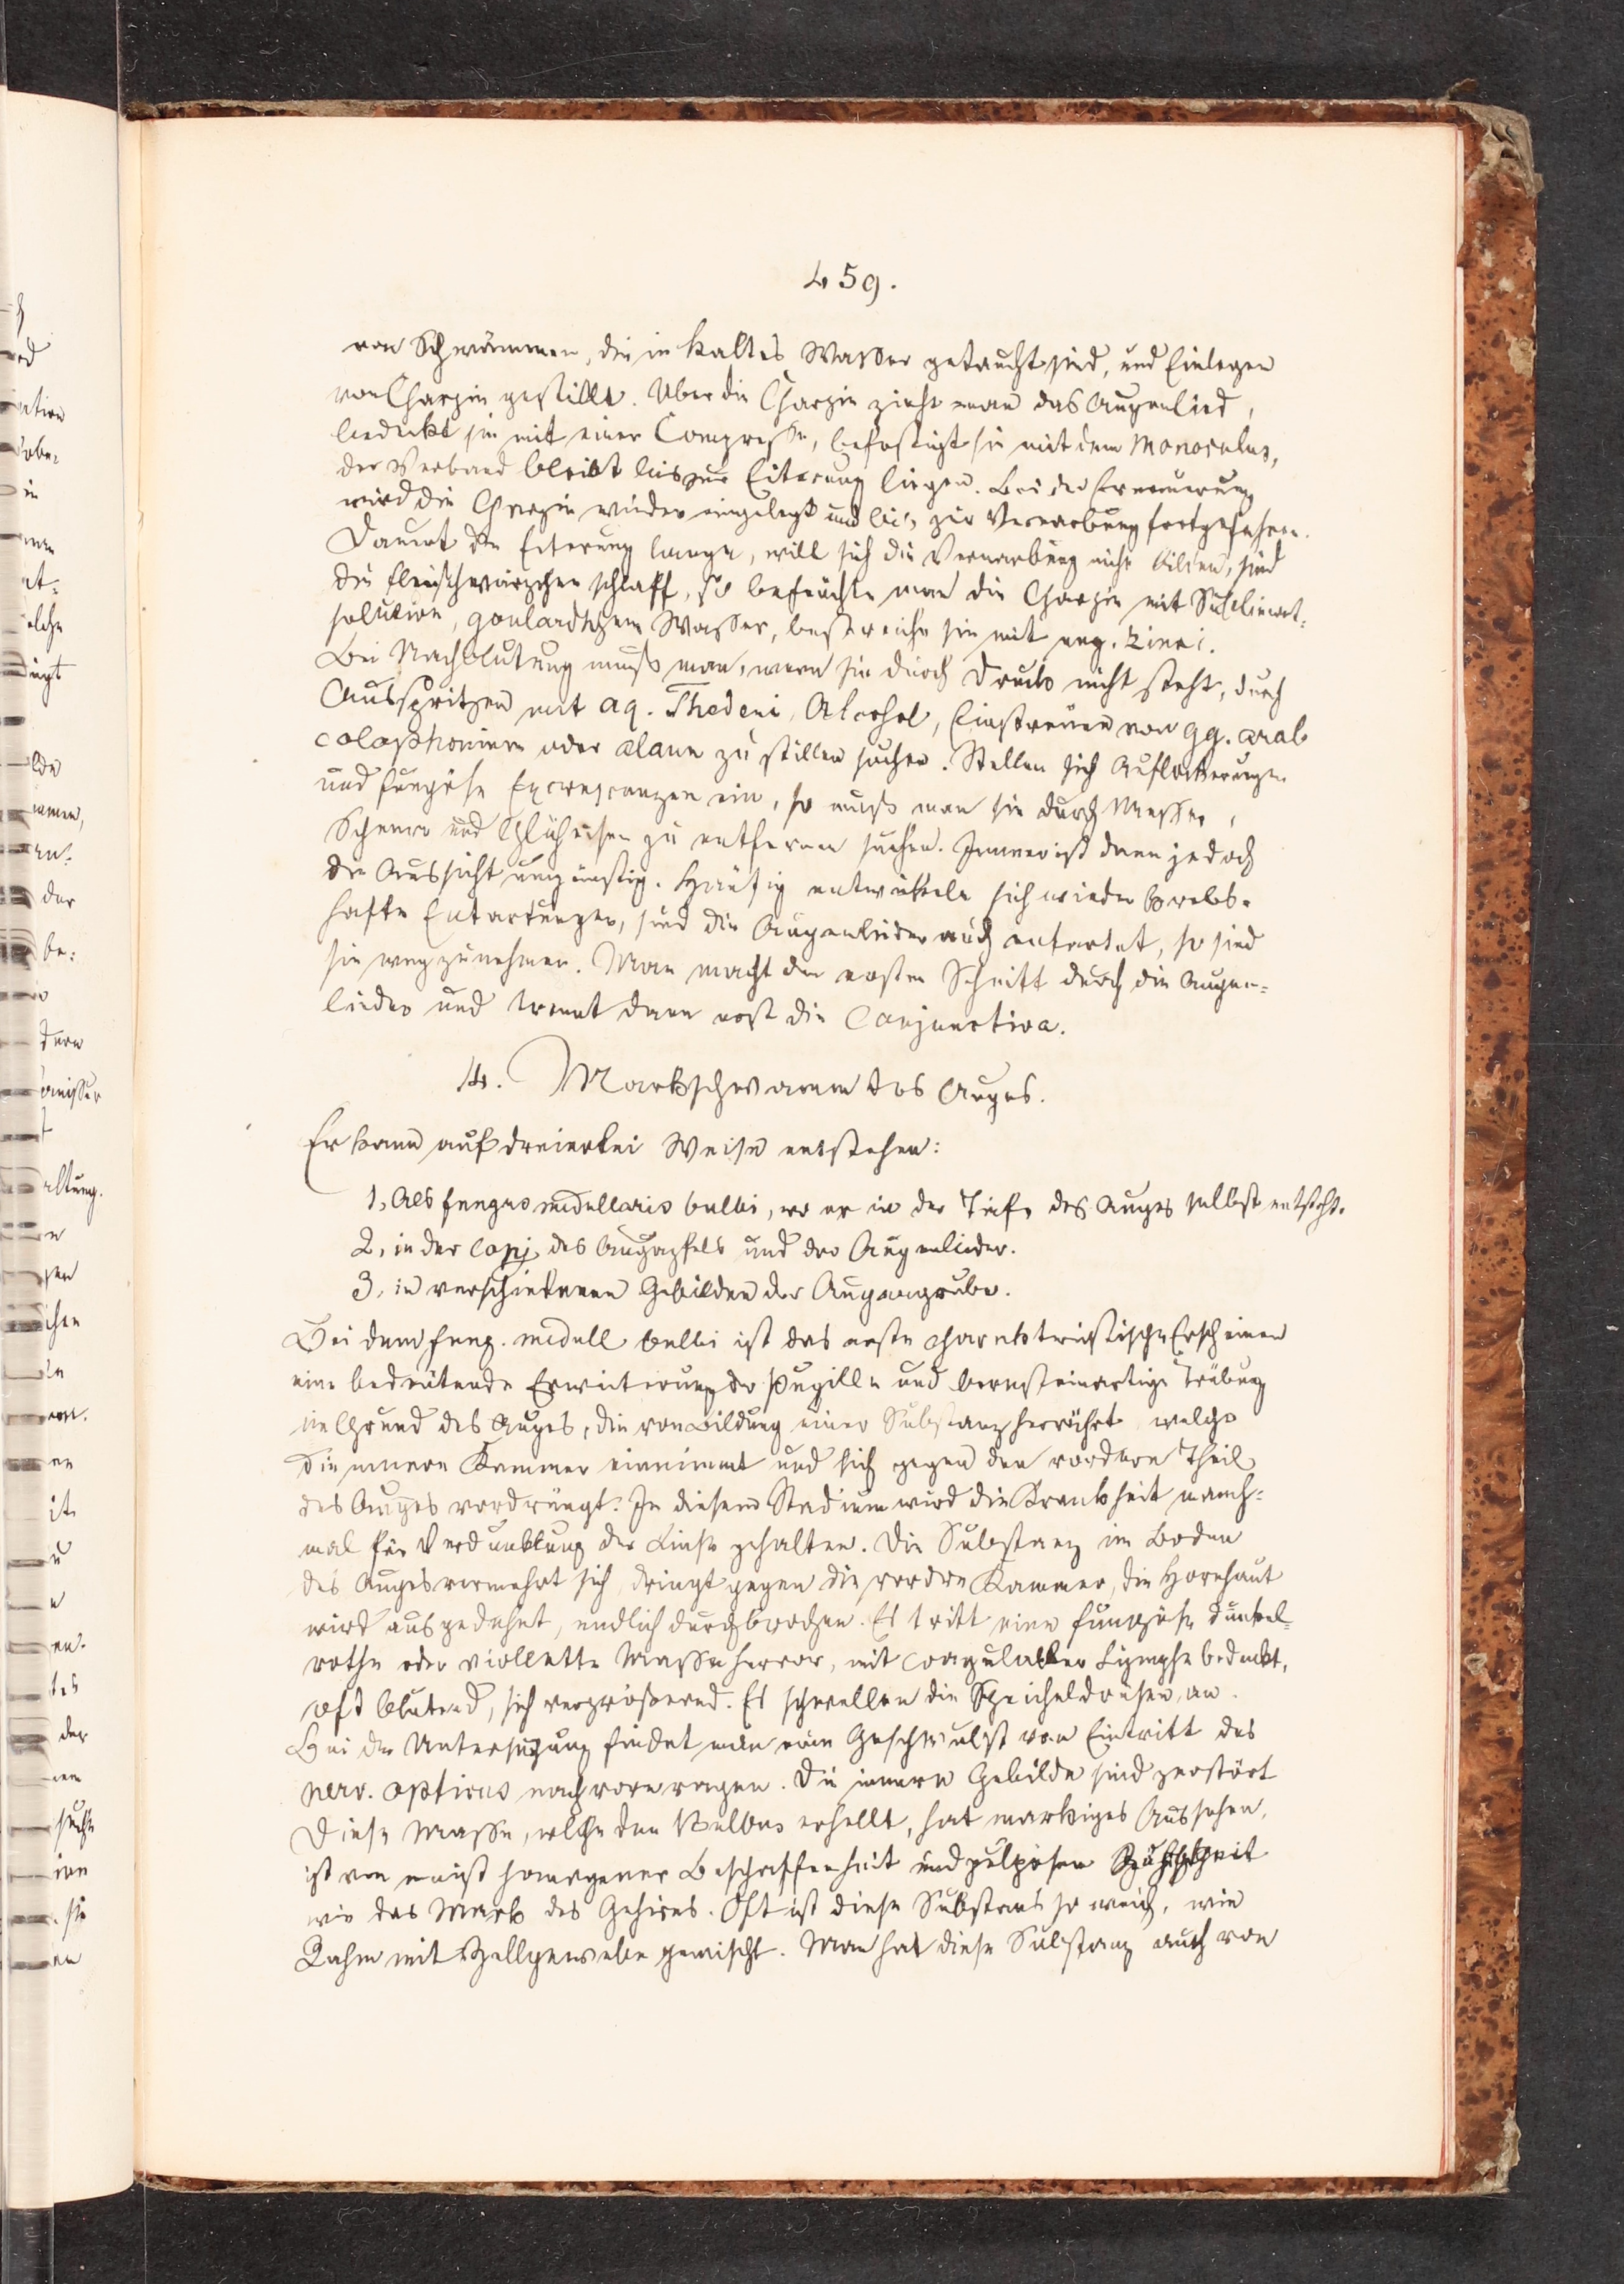 459.
von Schwämmen, die in kaltes Wasser getaucht sind, und Einlegen
von Charpie gestillt. Über die Charpie zieht man das Augenlied,
bedeckt sie mit einer Compresse, befestigt sie mit dem Monoculus,
der Verband bleibt bis zur Eiterung liegen. Bei der Erneuerung
wird die Charpie wieder eingelegt und bis zur Vernarbung fortgefahren.
Dauert die Eiterung lange, will sich die Vernarbung nicht bilden, sind
die Fleischwärzchen schlaff, so befeuchte man die Charpie mit Sublimat-
solution, goulardschem Wasser, bestreiche sie mit ung. zinci.
Bei Nachblutung muß man, wenn sie durch Druck nicht steht, durch
Ausspritzen mit aq. Thedeni, Alcohol, Einstreuen von gg. arab
colophonium oder alaun zu stillen suchen. Stellen sich Auflockerungen
und fungöse Excrescenzen ein, so muß man sie durch Messer,
Scheere und Glüheisen zu entfernen suchen. Immer ist dann jedoch
die Aussicht ungünstig. Häufig entwickeln sich wieder krebs-
hafte Entartungen, sind die Augenlieder auch entartet, so sind
sie wegzunehmen. Man macht den ersten Schnitt durch die Augen-
lieder und trennt dann erst die Conjunctiva.
4. Markschwamm des Auges.
Er kann auf dreierlei Weise entstehen:
1, Als fungus medullaris bulbi, wo er in der Tiefe des Auges selbst entsteht.
2, in der Conj. des Augapfels und der Augenlieder.
3, in verschiedenen Gebilden der Augengrube.
Bei dem fung. medull bulbi ist das erste charakteristische Erscheinen
eine bedeutende Erweiterung der Pupille und bernsteinartige Trübung
im Grund des Auges, die von Bildung einer Substanz herrührt welche
die innere Kammer einnimmt und sich gegen den vordern Theil
des Auges vordrängt. In diesem Stadium wird die Krankheit manch-
mal für Verdunklung der Linse gehalten. Die Substanz im Boden
des Auges vermehrt sich, dringt gegen die vordre Kammer, die Hornhaut
wird ausgedehnt, endlich durchbrochen. Es tritt eine fungöse dunkel-
rothe oder violette Masse hervor, mit coagulabler Lymphe bedeckt,
oft blutend, sich vergrößernd. Es schwellen die Speicheldrüsen an.
Bei der Untersuchung findet man eine Geschwulst vom Eintritt des
nerv. opticus nach vorn ragen. Die innern Gebilde sind zerstört
Diese Masse, welche den Bulbus erfüllt, hat markiges Aussehen,
ist von meist homogener Beschaffenheit und pulpöser
wie das Mark des Gehirns. Oft ist diese Substanz so weich, wie
Rahm mit Zellgewebe gemischt. Man hat diese Substanz auch von